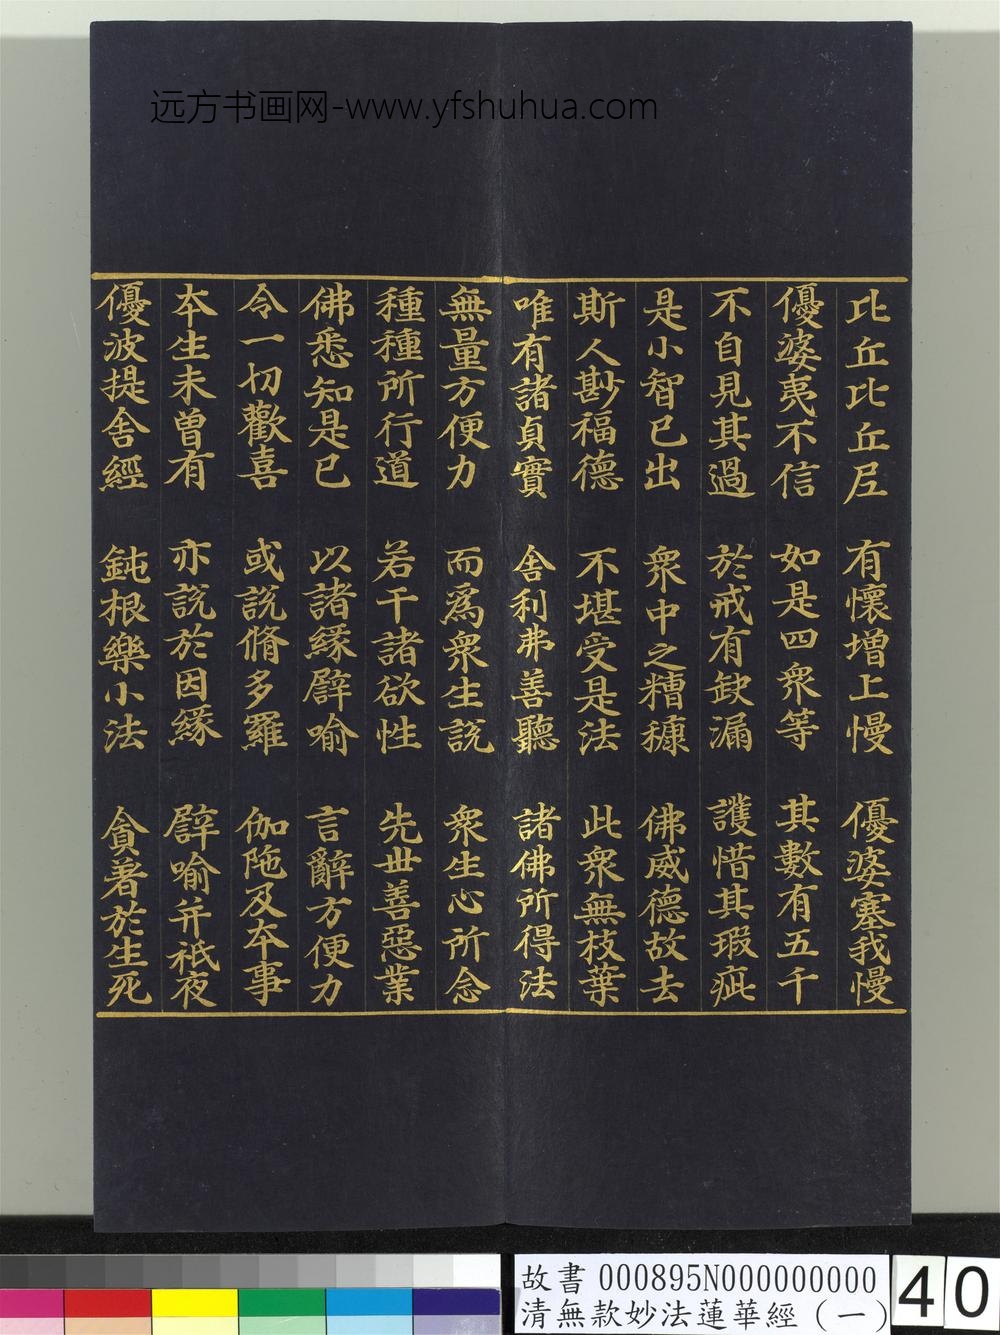 远方书画网-www.yfshuhua.com
比丘比丘尼 有懷增上慢 優婆塞我慢
優婆夷不信 如是四眾等 其數有五千
不自見其過 於戒有缺漏 護惜其瑕疵
是小智已出 眾中之糟糠 佛威德故去
斯人尠福德 不堪受是法 此眾無枝葉
唯有諸貞實 舍利弗善聽 諸佛所得法
無量方便力 而為眾生說 眾生心所念
種種所行道 若干諸欲性 先世善惡業
佛悉知是已 以諸緣譬喻 言辭方便力
令一切歡喜 或說脩多羅 伽陁及本事
本生未曾有 亦說於因緣 譬喻并祇夜
優波提舍經 鈍根樂小法 貪著於生死
故書 000895N000000000
清無款妙法蓮華經(一)
40